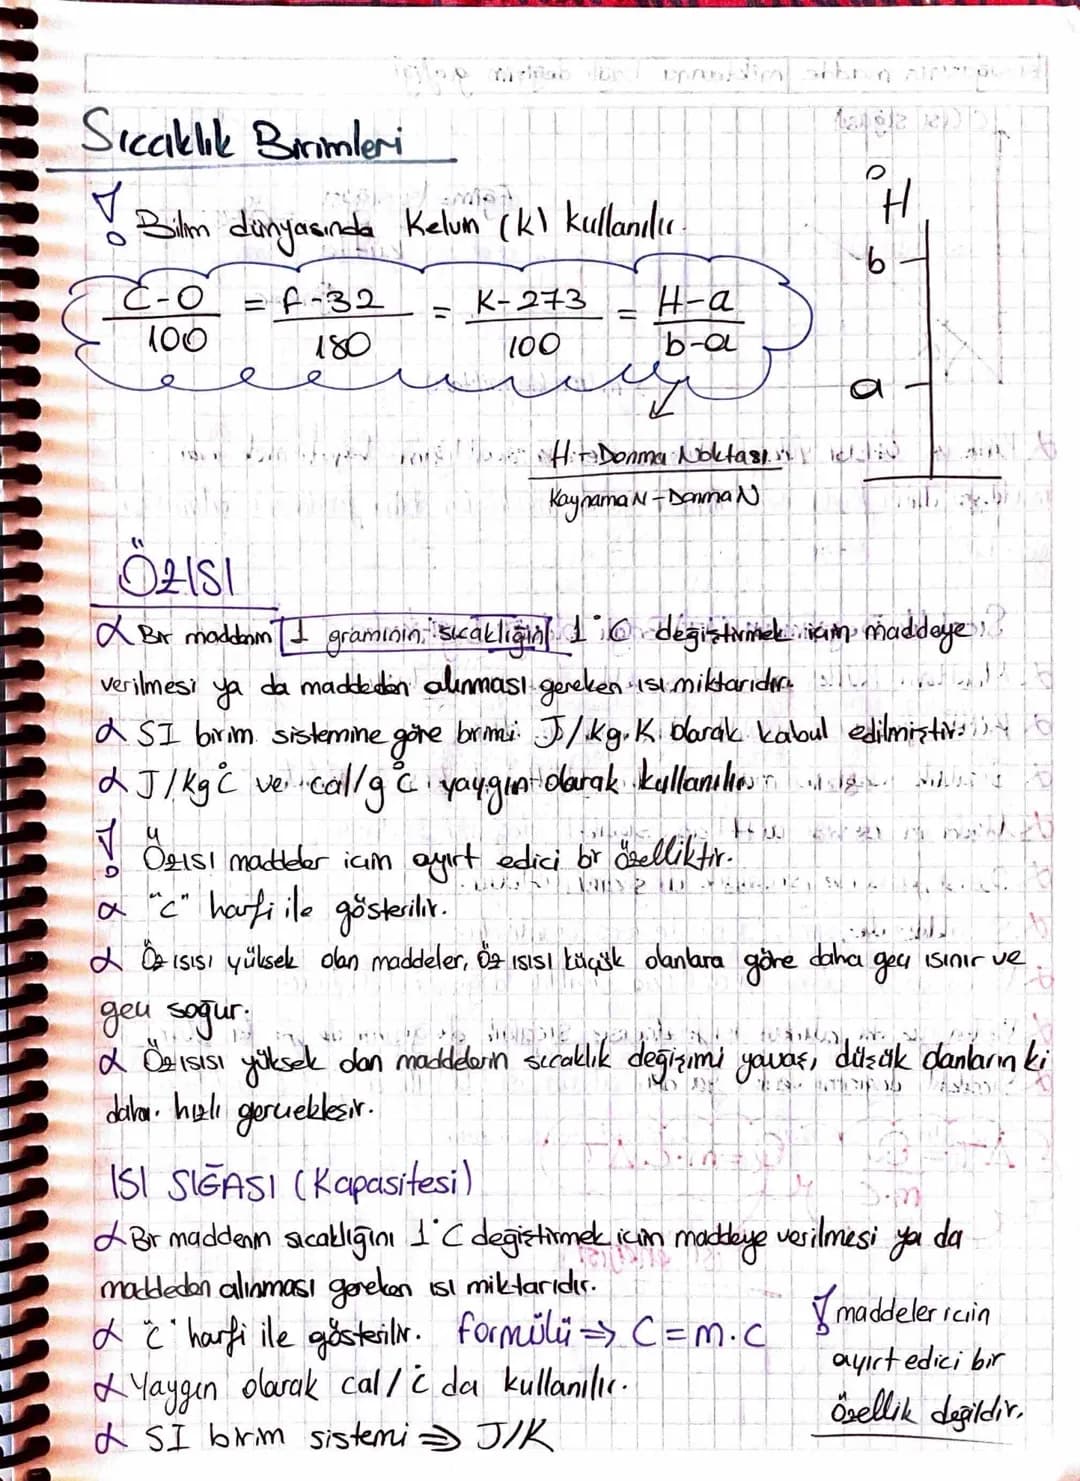 Sıcaklık Birimleri
! Bilim dünyasında Kelvin (K) kullanılır.
C-0/100 = F-32/180 = K-273/100 = H-a/b-a
°H
b
a
H - Donma Noktası
Kaynama N - Donma N
ÖZISI
α Bir maddenin 1 gramının sıcaklığını 1°C değiştirmek için maddeye
verilmesi ya da maddeden alınması gereken ısı miktarıdır.
α SI birim sistemine göre birimi J/kg.K olarak kabul edilmiştir.
α J/kg°C ve cal/g°C yaygın olarak kullanılır.
! Özısı maddeler için ayırt edici bir özelliktir.
α "c" harfi ile gösterilir.
α Öz ısısı yüksek olan maddeler, öz ısısı küçük olanlara göre daha geç ısınır ve
geç soğur.
α Öz ısısı yüksek olan maddelerin sıcaklık değişimi yavaş, düşük olanların ki
daha hızlı gerçekleşir.
ISI SIĞASI (Kapasitesi)
α Bir maddenin sıcaklığını 1°C değiştirmek için maddeye verilmesi ya da
maddeden alınması gereken ısı miktarıdır.
α "C" harfi ile gösterilir. formülü ⇒ C = m.c
α Yaygın olarak cal/°C da kullanılır.
α SI birim sistemi ⇒ J/K
! maddeler için
ayırt edici bir
özellik değildir.